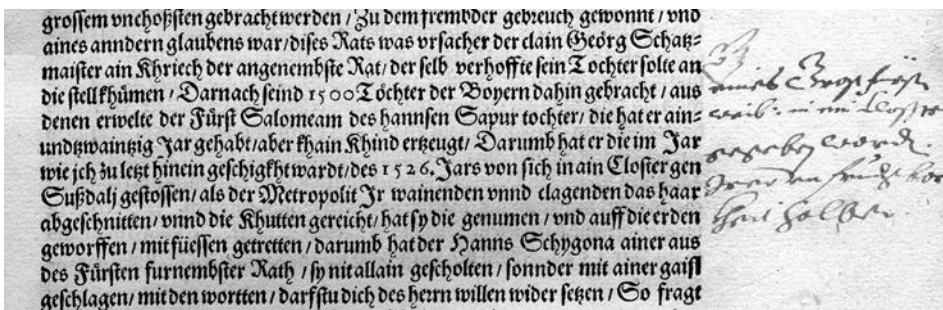 grossem vnchoßsten gebracht werden / Zu dem frembder gebreuch gewonnt / vnd
aines anndern glaubens war / dises Rats was vrsacher der clain Georg Schatz⸗
maister ain Khriech der angenembste Rat / der selb verhoffte sein Tochter solte an
die stell khümen / Darnach seind 1500 Töchter der Boyern dahin gebracht / aus
denen erwelte der Fürst Salomeam des hannsen Sapur tochter / die hat er ain⸗
undtzwaintzig Jar gehabt / aber khain Khind ertzeugt / Darumb hat er die im Jar
wie ich zu letzt hinein geschigkht wardt / des 1526. Jars von sich in ain Closter gen
Sußdalj gestossen / als der Metropolit Jr wainenden vnnd clagenden das haar
abgeschnitten / vnnd die Khutten gereicht / hat sy die genumen / vnd auff die erden
geworffen / mit füessen getretten / darumb hat der Hanns Schygona ainer aus
des Fürsten furnembster Rath / sy nit allain gescholten / sonnder mit ainer gaisl
geschlagen / mit den wortten / darfstu dich des herrn willen wider setzen / So fragt
eines Großfürst
weib: in ein Closter
gegeben word.